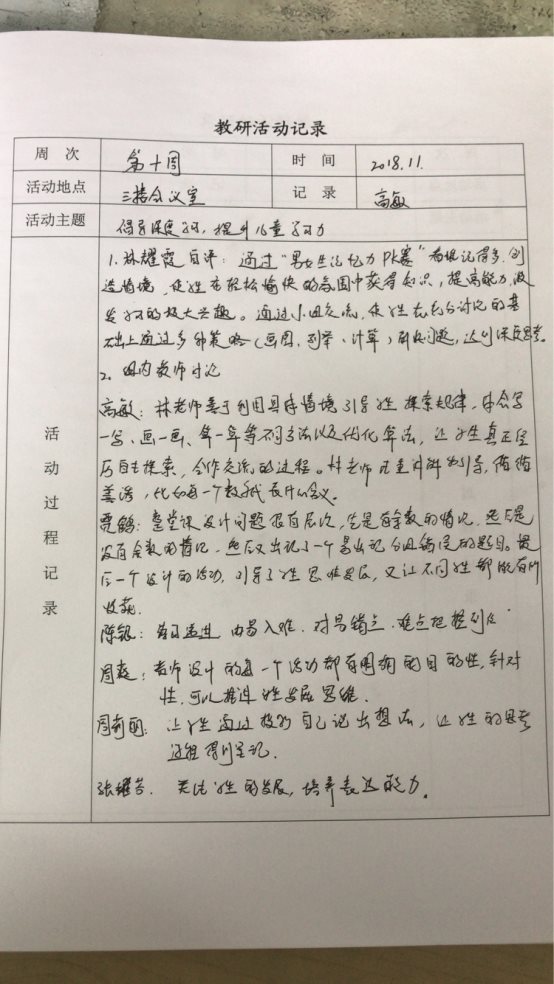 教研活动记录
周次 第十周 时间 2018.11.
活动地点 三楼会议室 记录 高敏
活动主题 倡导深度学习，提升儿童学习力
活动过程记录
1. 林耀霞自评：通过“男女生记忆力PK赛”看谁记得多，创
造情境，使学生在轻松愉快的氛围中获得知识，提高能力，激
发学习的极大兴趣。通过小组交流，使学生在充分讨论的基
础上通过多种策略（画图、列举、计算）解决问题，达到深度思考。
2、组内教师讨论
高敏：林老师善于利用具体情境引导学生探索规律，体会写
一写、画一画、算一算等不同方法以及优化算法，让学生真正经
历自主探索，合作交流的过程。林老师注重讲解和引导，循循
善诱，比如每一个数代表什么含义。
贾鹤：整堂课设计问题很有层次，先是有余数的情况，然后是
没有余数的情况，然后又出现了一个易出现分组错误的题目。最
后一个设计的活动，引导了学生思维发展，又让不同学生都能有所
收获。
陈银：层层递进 由易入难，对易错点、难点把握到位
周蔹：老师设计的每一个活动都有周到的目的性，针对
性，可以推进学生发展思维．
周莉丽：让学生通过教的自己说出想法，让学生的思考
过程得到呈现．
张耀芳．关注学生的发展，培养表达能力。